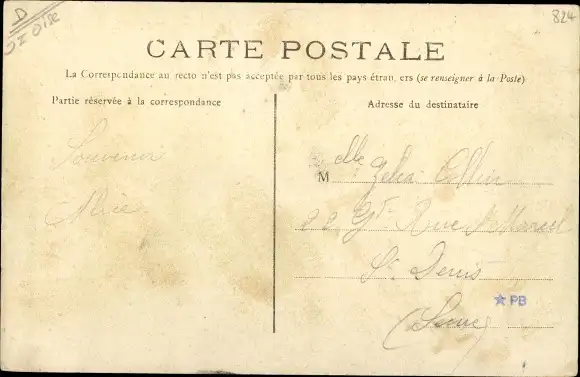 D
S. Oise
824
CARTE POSTALE
La Correspondance au recto n'est pas acceptée par tous les pays étran, ers (se renseigner à la Poste)
Partie réservée à la correspondance
Adresse du destinataire
Souvenir
Alice
Melle Zélia
88 Gde Rue St Marcel
St Denis
(Seine)
PB